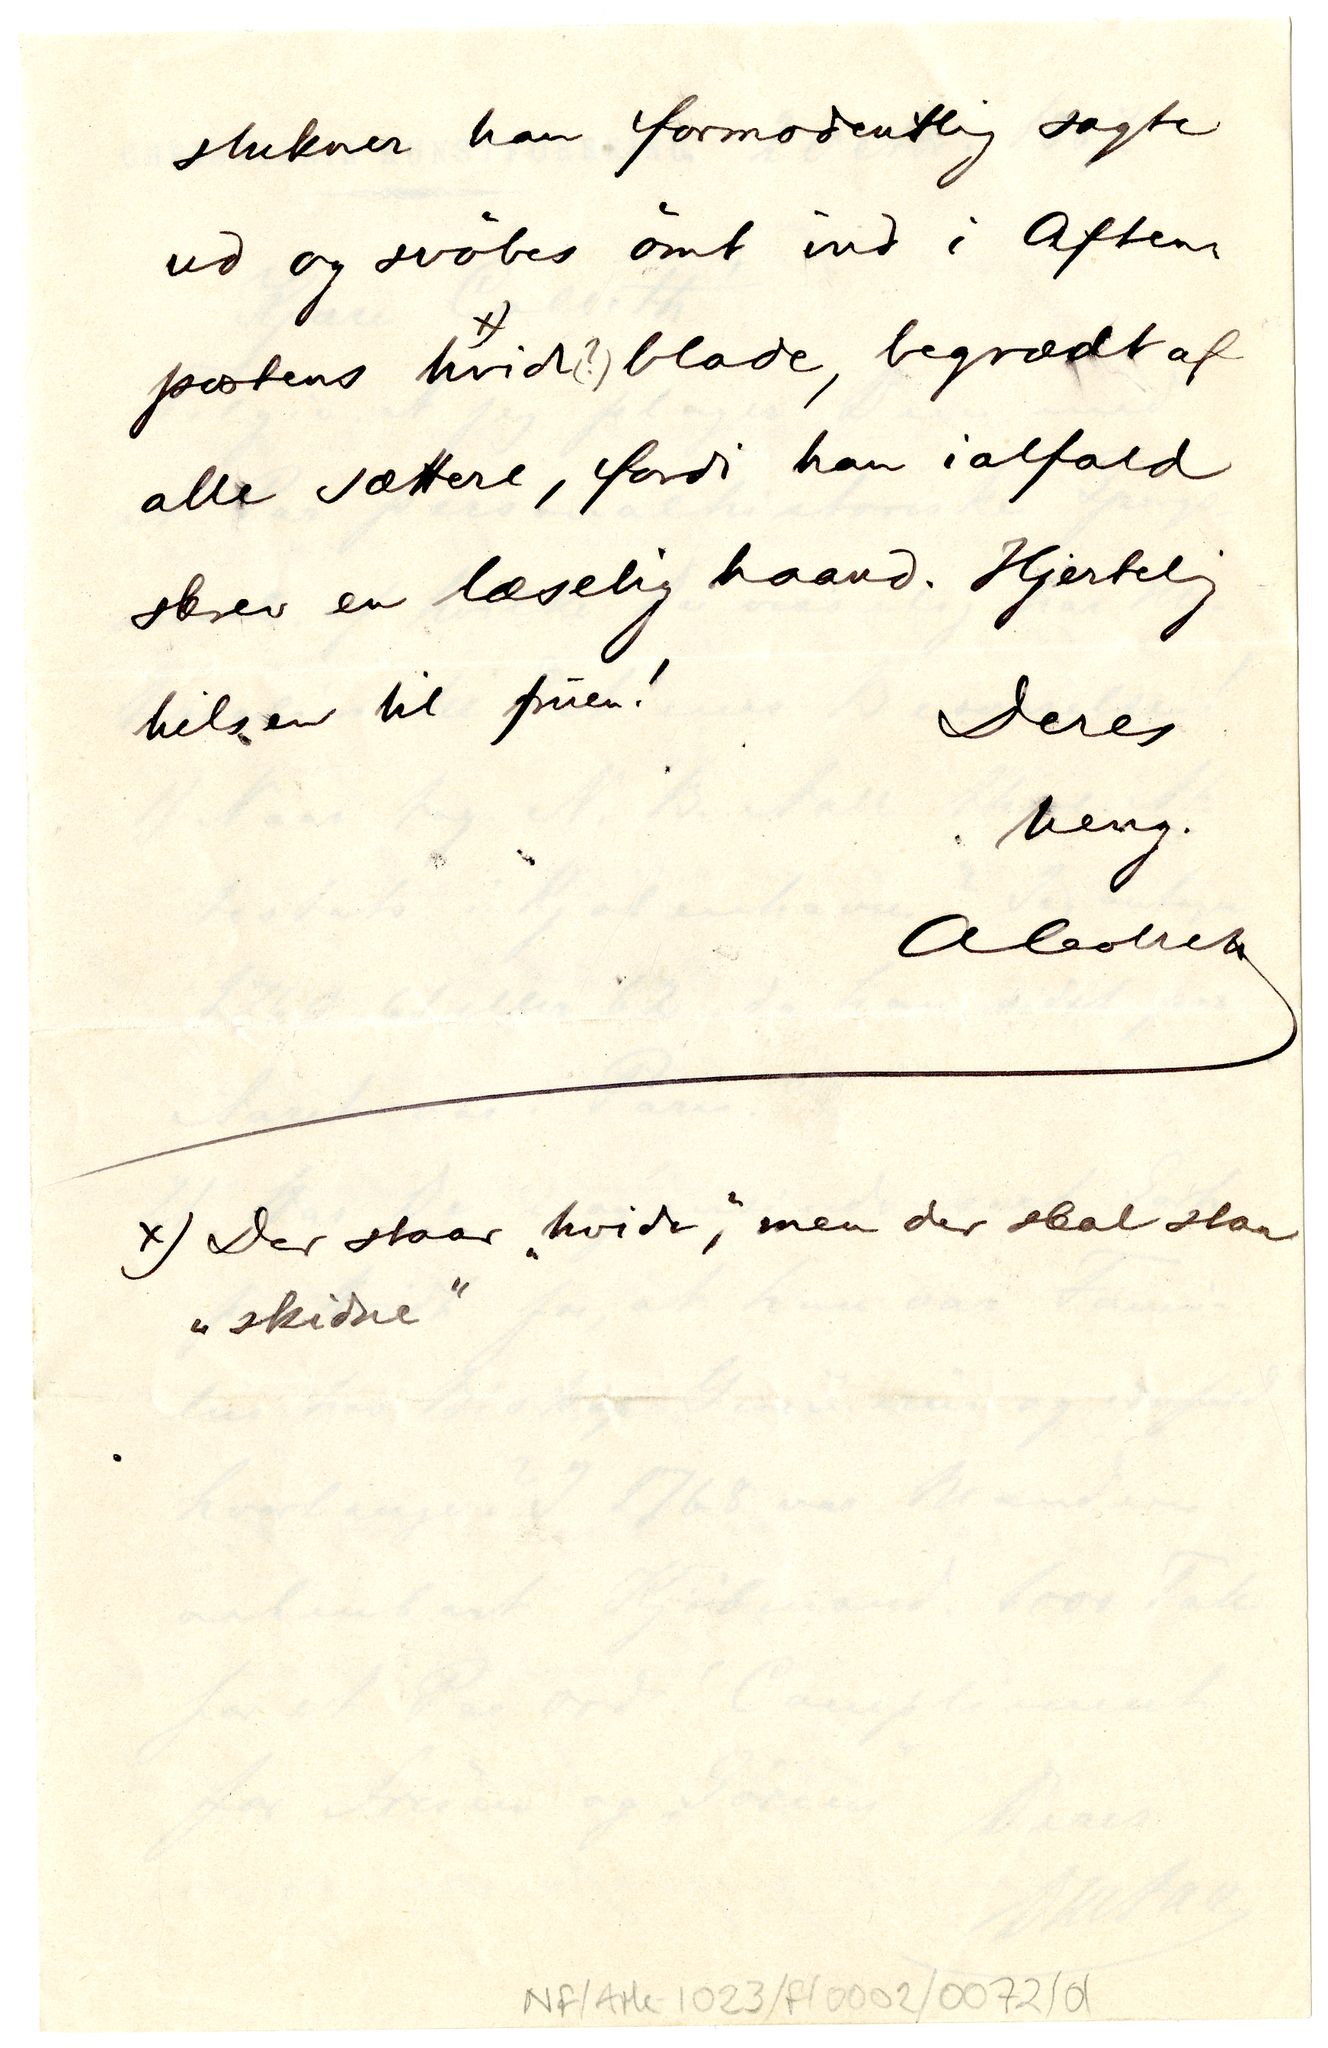 slukner han formodentlig sagte
ud og svöbes ömt ind i Aften-
postens hvide x) (?) blade, begrædt af
alle sættere, fordi han ialfald
skrev en læselig haand. Hjertelig
hilsen til fruen!
Deres
heng.
x) Der staar „hvide“, men der skal staa
„skidne“
NF/Ark-1023/F/0002/0072/d